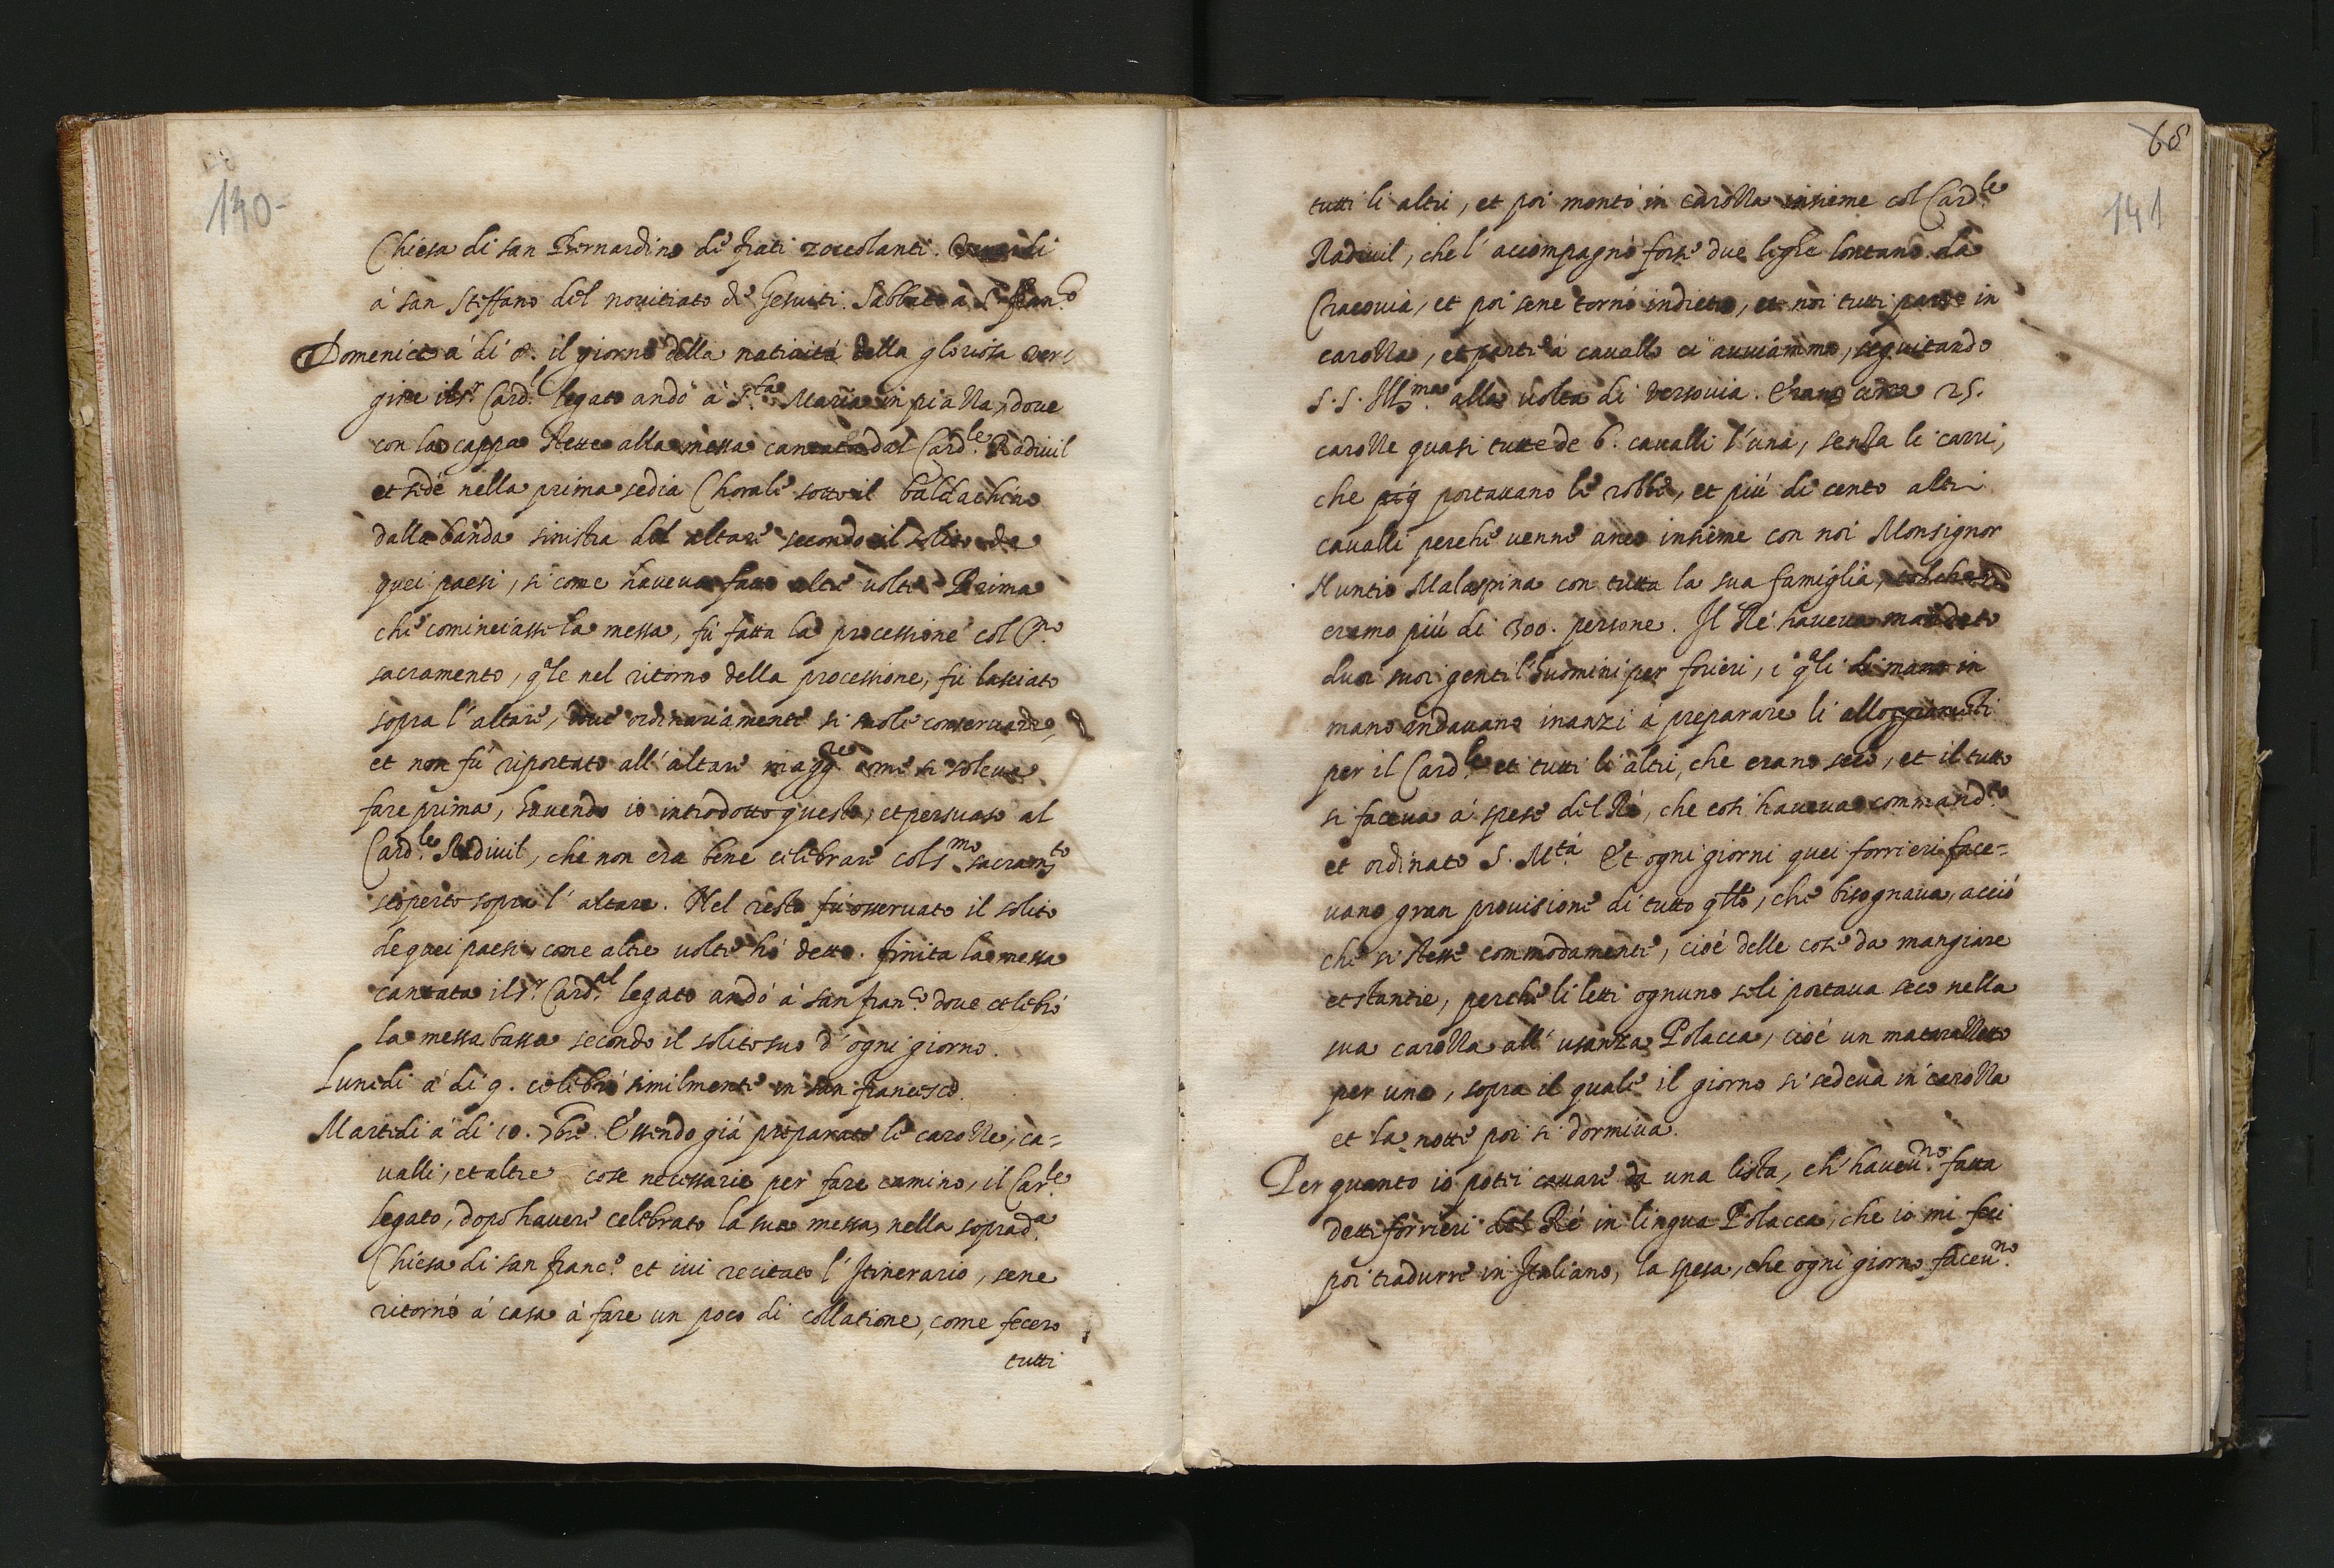 140-
Chiesa di san Bernardino de frati zoccolanti. Venerdi
à san Steffano del novitiato de Gesuiti. Sabbato à S. franc.o
Domenica à di 8. il giorno della natività della gloriosa ver-
gine il s.r Card.l legato andò à S.ta Maria in piazza, dove
con la cappa stette alla messa cantata dal Card.le Radivil
et sedè nella prima sedia Chorale sotto il baldachino
dalla banda sinistra del altare secondo il solito de
quei paesi, si come haveva fatto altre volte. Prima
che cominciasse la messa, fù fatta la processione col S.mo
sacramento, q.le nel ritorno della processione, fù lasciato
sopra l'altare, dove ordinariamente si suole conservare,
et non fù riportato all'altare magg.re come si soleva
fare prima, havendo io introdotto questo, et persuaso al
Card.le Radivil, che non era bene celebrare col s.mo sacram.to
scoperto sopra l'altare. Nel resto fù osservato il solito
de quei paesi, come altre volte hò detto. finita la messa
cantata il s.r Card.al legato andò à san franc.o dove celebrò
la messa bassa secondo il solito suo d'ogni giorno.
Lunedi à di 9. celebrò similmente in san francesco.
Martedi à di 10. 7bre. Essendo già preparate le carozze, ca=
valli, et altre cose necessarie per fare camino, il Car.le
legato, dopò havere celebrato la sua messa, nella soprad.a
Chiesa di san franc.o et ivi recitato l'Itinerario, sene
ritornò à casa à fare un poco di collatione, come fecero
tutti
68
141
tutti li altri, et poi montò in carozza insieme col Card.le
Radivil, che l'accompagnò forse due leghe lontano da
Cracovia, et poi sene tornò indietro, et noi tutti parte in
carozza, et parte à cavallo ci avviammo, seguitando
S. S. Ill.ma alla volta di Versovia. Erano circa 25.
carozze quasi tutte de 6. cavalli l'una, senza le carri,
che portavano le robbe, et più di cento altri
cavalli perche venne anco insieme con noi Monsignor
Nuntio Malaspina con tutta la sua famiglia, talche
eramo più di 300. persone. Il Rè haveva mandato
duoi suoi gentil'huomini per forieri, i q.li di mano in
mano andavano inanzi à preparare li alloggiam.ti
per il Card.le et tutti li altri, che erano seco, et il tutto
si faceva à spese del Rè, che così haveva command.to
et ordinato S. M.tà Et ogni giorni quei forrieri face=
vano gran provisione di tutto q.llo, che bisognava, acciò
che si stesse commodamente, cioè delle cose da mangiare
et stantie, perche li letti ognuno seli portava seco nella
sua carozza all'usanza Polacca, cioè un matarazzetto
per uno, sopra il quale il giorno si sedeva in carozza
et la notte poi si dormiva.
Per quanto io potei cavare da una lista, ch'havev.no fatta
detti forrieri del Rè in lingua Polacca, che io mi feci
poi tradurre in Italiano, la spesa, che ogni giorno facev.no